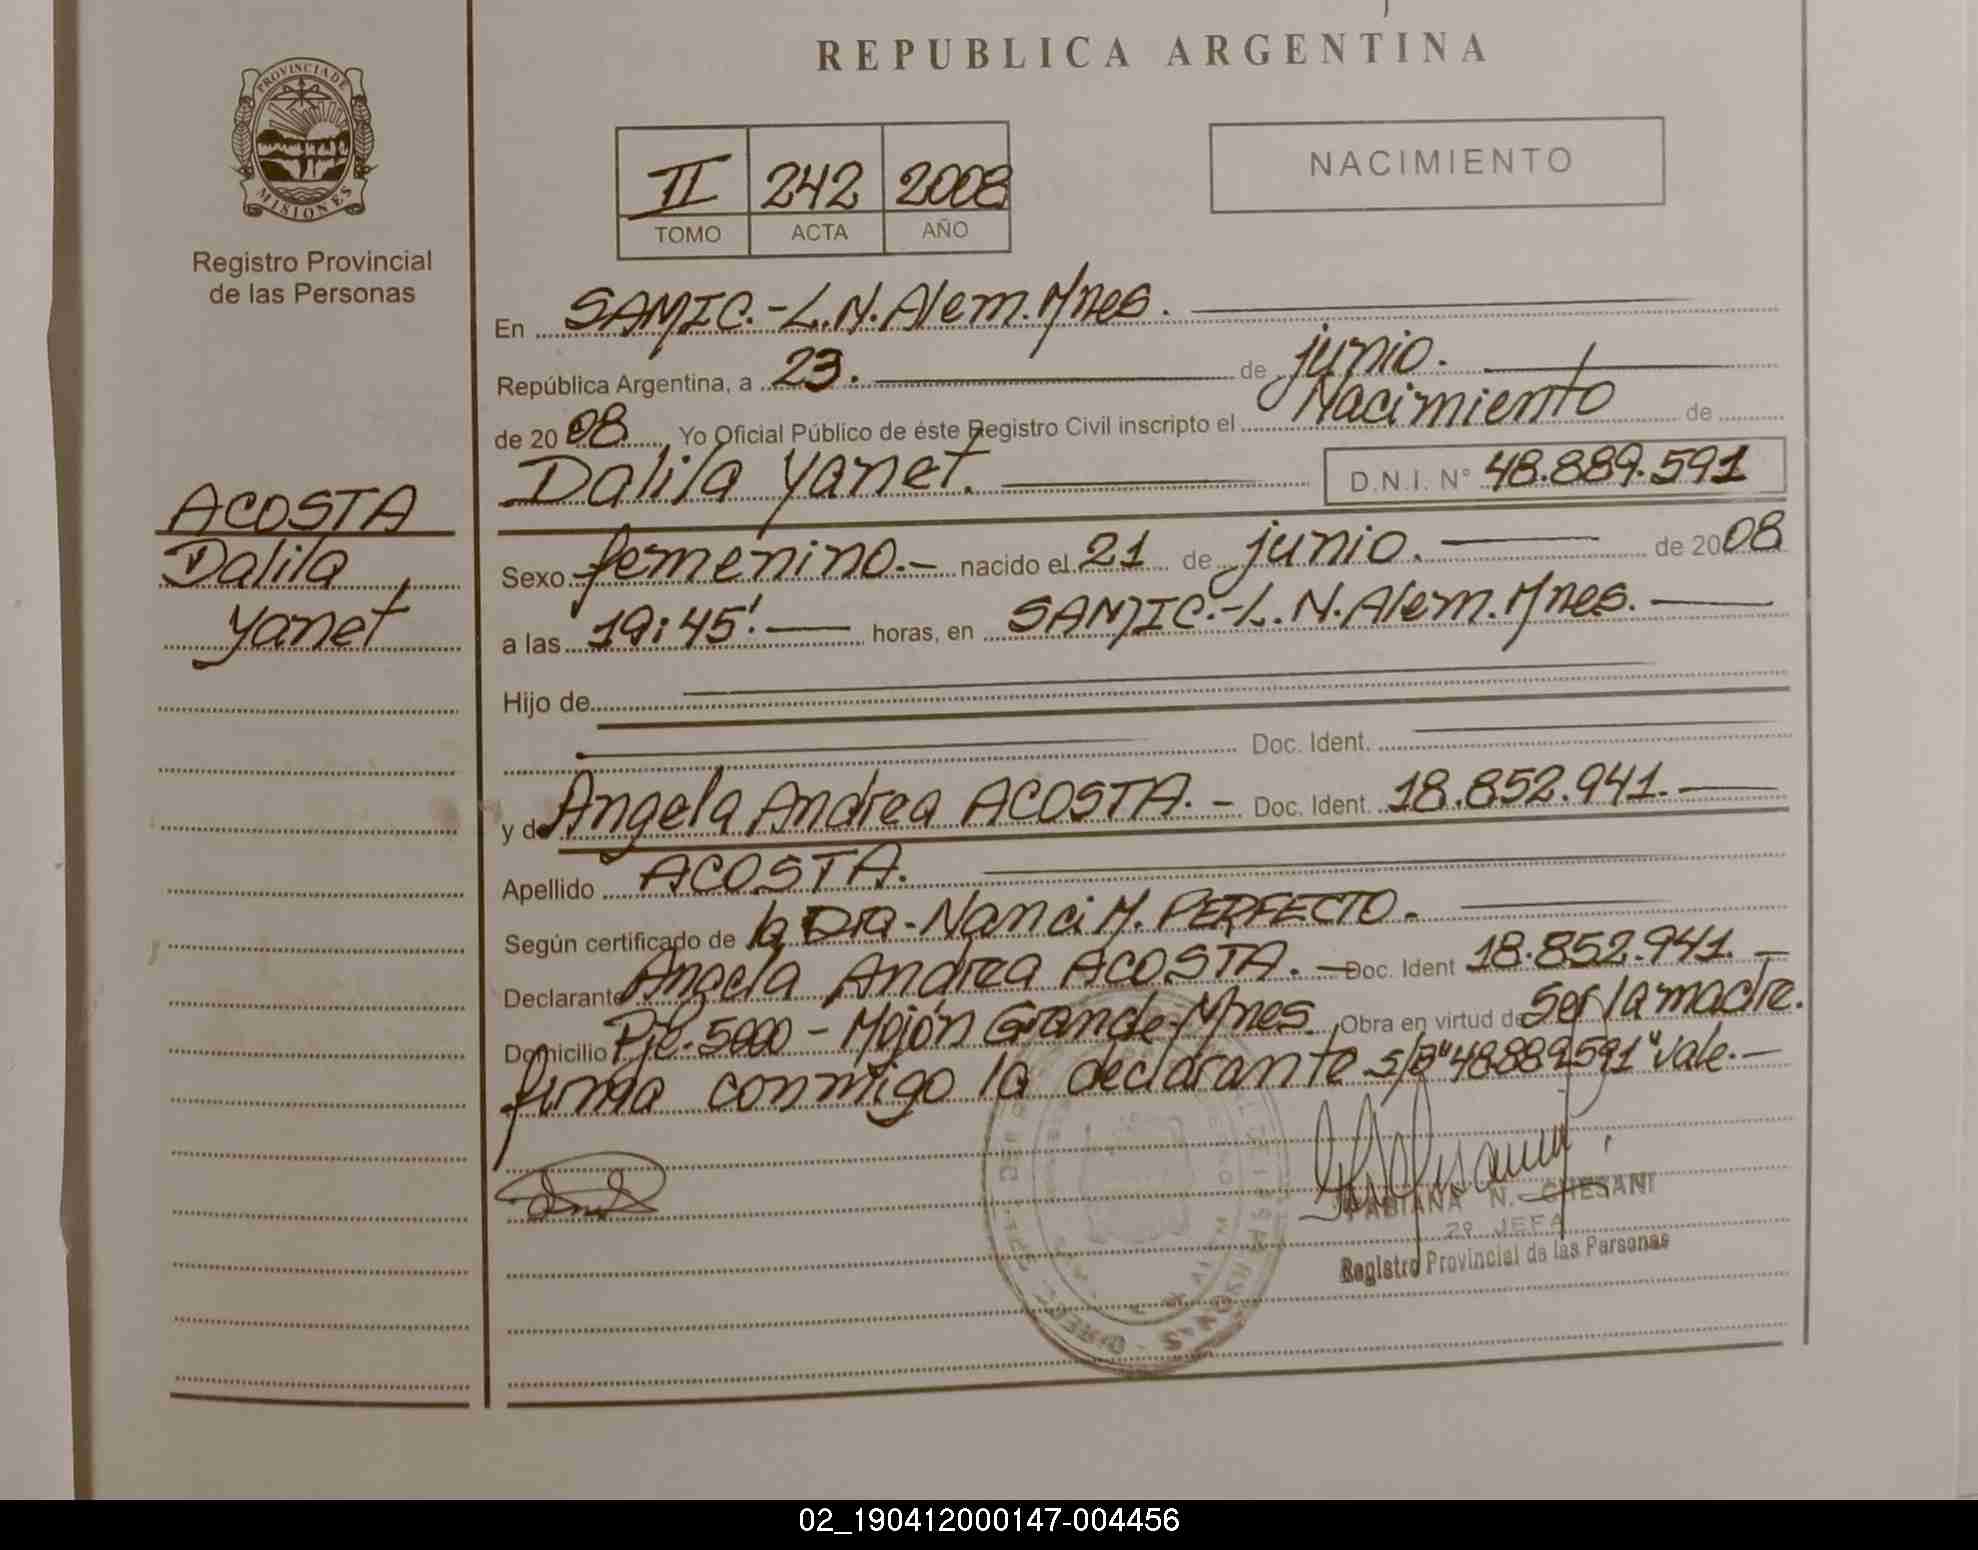 REPUBLICA ARGENTINA
PROVINCIA DE
MISIONES
Registro Provincial
de las Personas
II 242 2008
TOMO ACTA AÑO
NACIMIENTO
ACOSTA
Dalila
Yanet
En SAMIC.-L.N.Alem.Mnes.
República Argentina, a 23. de junio.
de 2008 Yo Oficial Público de éste Registro Civil inscripto el Nacimiento de
Dalila Yanet. D.N.I. N° 48.889.591
Sexo femenino.- nacido el 21 de junio. de 2008
a las 19:45'. horas, en SAMIC.-L.N.Alem.Mnes.
Hijo de
Doc. Ident.
y de Angela Andrea ACOSTA.- Doc. Ident. 18.852.941.
Apellido ACOSTA.
Según certificado de la Dra. Nanci M. PERFECTO.
Declarante Angela Andrea ACOSTA. Doc. Ident 18.852.941.
Domicilio Pje. 5000 - Mojón Grande-Mnes. Obra en virtud de Ser la madre.
firma conmigo la declarante s/B"48889591"vale.-
FABIANA N. CHESANI
2º JEFA
Registro Provincial de las Personas
02_190412000147-004456